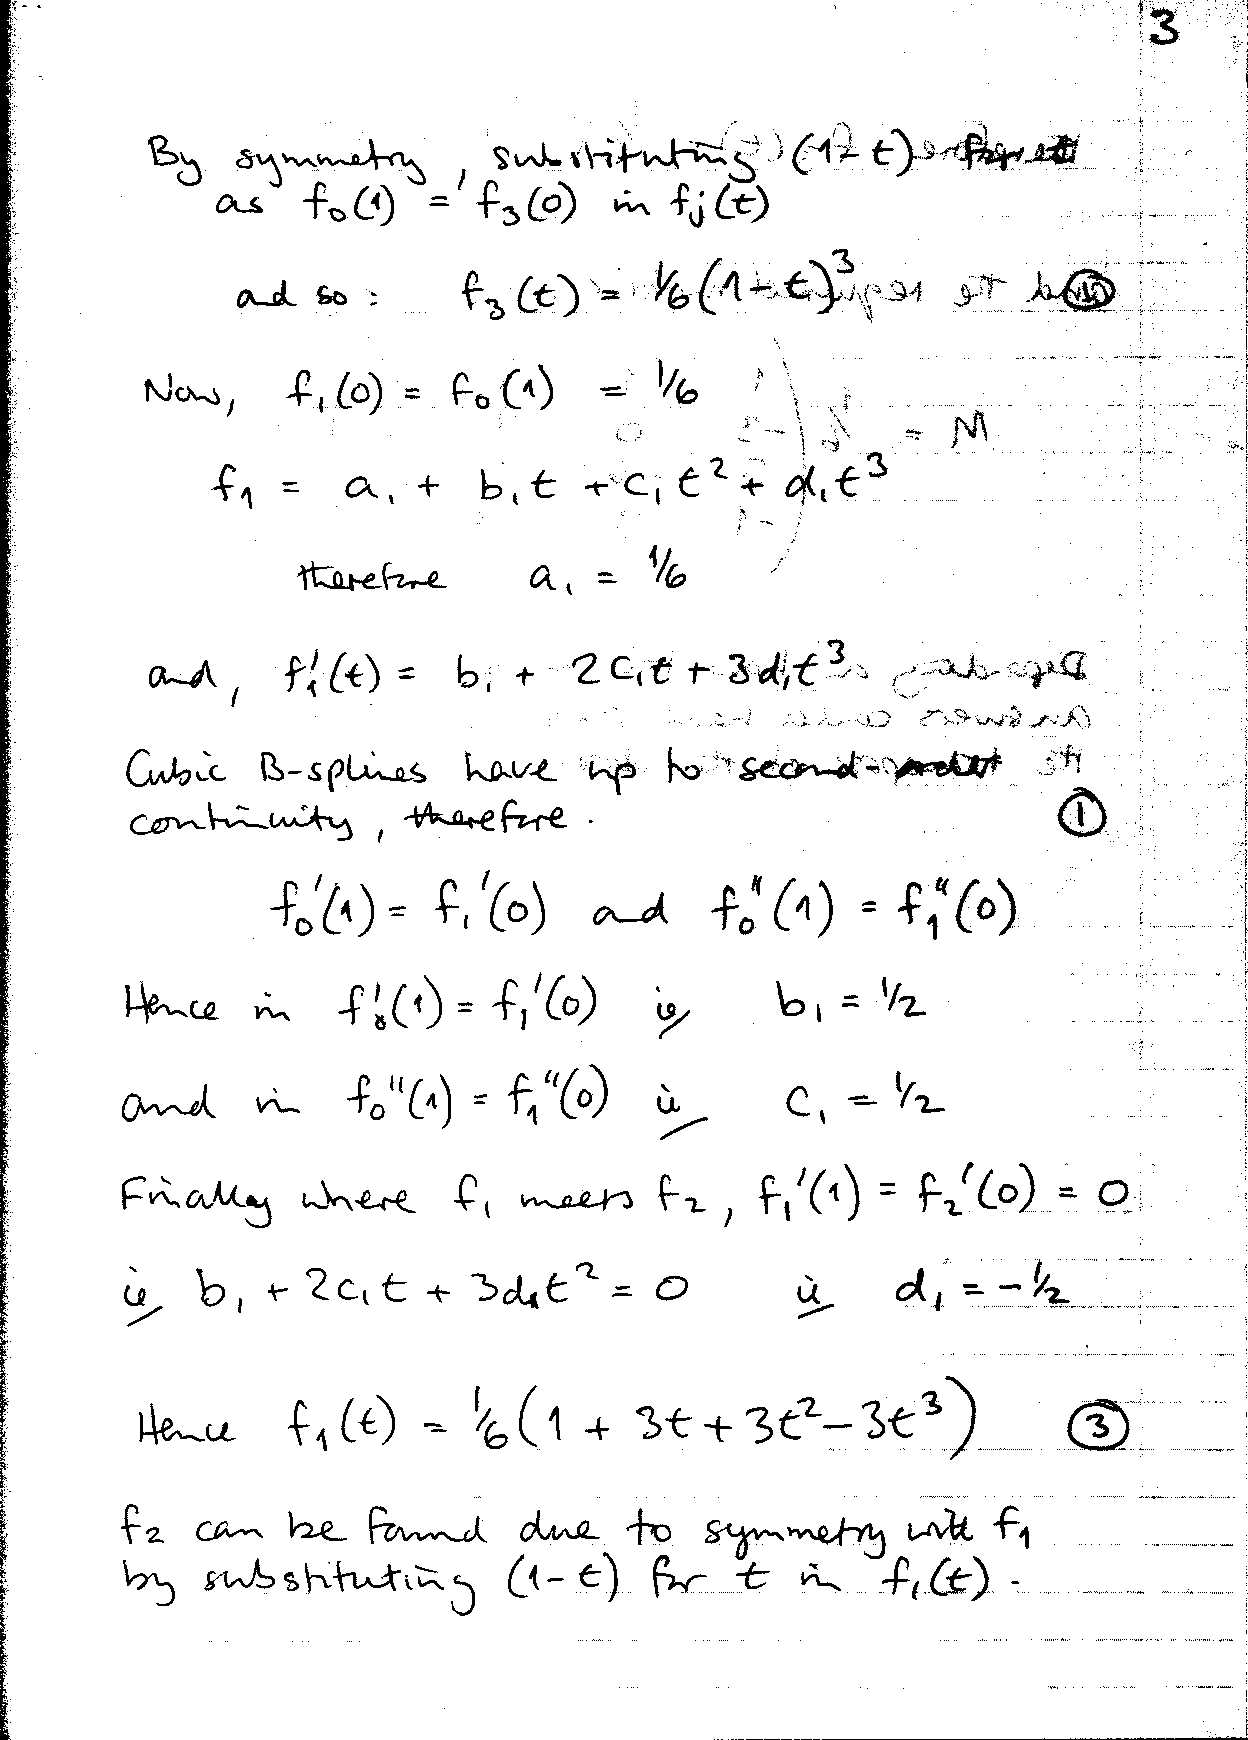 3
By symmetry, substituting (1-t) for t
as f₀(1) = f₃(0) in fⱼ(t)
and so : f₃(t) = 1/6(1-t)³
Now, f₁(0) = f₀(1) = 1/6
f₁ = a₁ + b₁t + c₁t² + d₁t³
therefore a₁ = 1/6
and, f₁'(t) = b₁ + 2c₁t + 3d₁t³
Cubic B-splines have up to second-order
continuity, therefore. ①
f₀'(1) = f₁'(0) and f₀"(1) = f₁"(0)
Hence in f₀'(1) = f₁'(0) ie b₁ = 1/2
and in f₀"(1) = f₁"(0) ie c₁ = 1/2
Finally where f₁ meets f₂, f₁'(1) = f₂'(0) = 0
ie b₁ + 2c₁t + 3d₁t² = 0 ie d₁ = -1/2
Hence f₁(t) = 1/6(1 + 3t + 3t² - 3t³) ③
f₂ can be found due to symmetry with f₁
by substituting (1-t) for t in f₁(t).